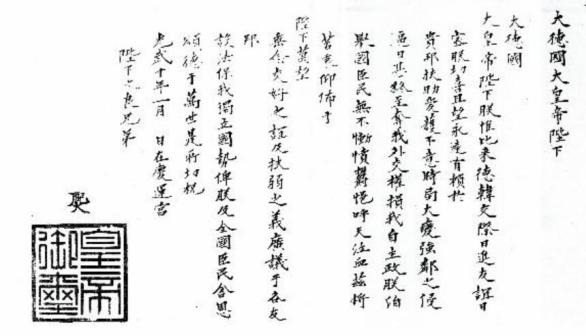 大德國大皇帝陛下
大德國
大皇帝陛下朕惟比來德韓交際日進友誼日
密朕切喜且望永遠有賴於
貴邦扶助愛護不意時局大變強鄰之侵
逼日甚終至奪我外交權損我自主政朕洎
舉國臣民無不慟憤鬱悒呼天泣血茲將
苦衷仰佈于
陛下萬望
垂念交好之誼及扶弱之義廣議于各友
邦
設法保我獨立國勢俾朕及全國臣民含恩
頌德于萬世是所切祝
光武十年一月 日在慶運宮
陛下之良兄弟
皇帝
御璽